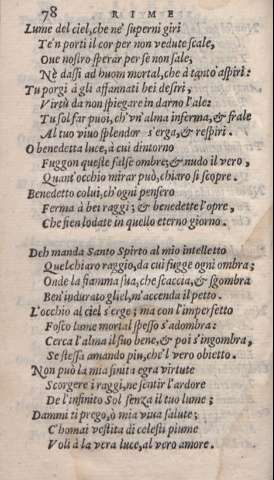 78 RIME
Lume del ciel, che ne' superni giri
Te'n porti il cor per non vedute scale,
Oue nostro sperar per se non sale,
Nè dassi ad huom mortal, che à tanto aspiri:
Tu porgi à gli affannati bei desiri,
Virtù da non spiegare in darno l'ale:
Tu sol far puoi, ch'vn'alma inferma, & frale
Al tuo viuo splendor s'erga, & respiri.
O benedetta luce, à cui dintorno
Fuggon queste false ombre; & nudo il vero,
Quant'occhio mirar può, chiaro si scopre.
Benedetto colui, ch'ogni pensero
Ferma à bei raggi; & benedette l'opre,
Che sien lodate in quello eterno giorno.
Deh manda Santo Spirto al mio intelletto
Quel chiaro raggio, da cui fugge ogni ombra;
Onde la fiamma sua, che scaccia, & sgombra
Ben'indurato gliel, m'accenda il petto.
L'occhio al ciel s'erge; ma con l'imperfetto
Fosco lume mortal spesso s'adombra:
Cerca l'alma il suo bene, & poi s'ingombra,
Se stessa amando piu, che'l vero obietto.
Non può la mia finita egra virtute
Scorgere i raggi, ne sentir l'ardore
De l'infinito Sol senza il tuo lume;
Dammi ti prego, ò mia viua salute;
C'homai vestita di celesti piume
Voli à la vera luce, al vero amore.